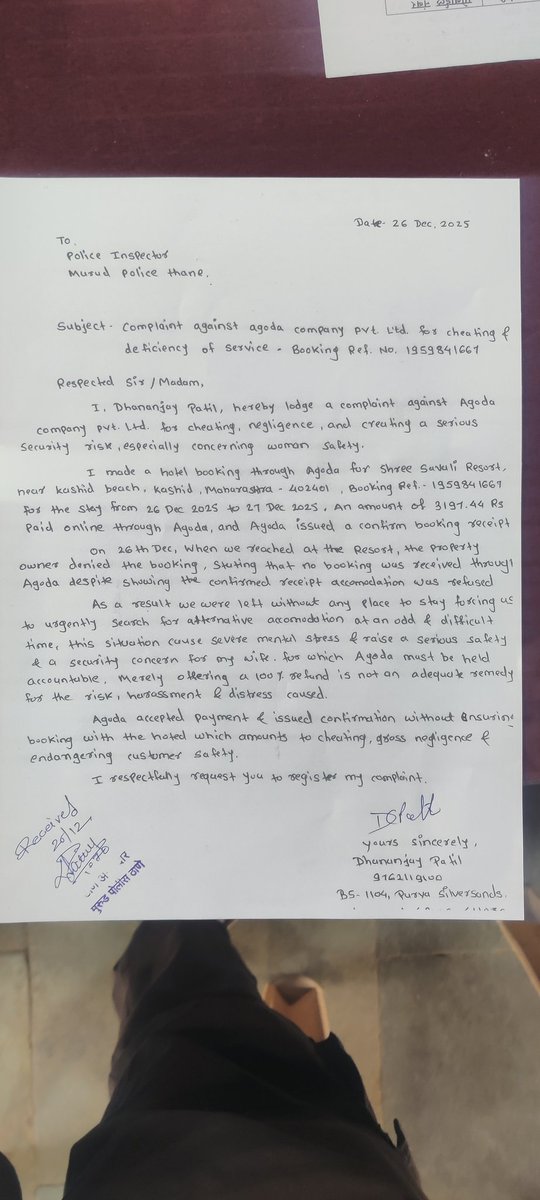 मोबाईल नंबर
Date- 26 Dec, 2025
To,
Police Inspector
Murud Police thane,
Subject- Complaint against agoda company pvt. Ltd. for cheating &
deficiency of service - Booking Ref. No. 1959841667
Respected Sir/Madam,
I, Dhananjay Patil, hereby lodge a complaint against Agoda
company pvt. Ltd. for cheating, negligence, and creating a serious
security risk, especially concerning woman safety.
I made a hotel booking through Agoda for Shree Savali Resort,
near kashid beach, Kashid, Maharastra - 402401, Booking Ref.- 1959841667
for the stay from 26 Dec 2025 to 27 Dec 2025, An amount of 3197.44 Rs
Paid online through Agoda, and Agoda issued a confirm booking receipt
On 26th Dec, When we reached at the Resort, the property
owner denied the booking, stating that no booking was received through
Agoda despite showing the confirmed receipt accomodation was refused
As a result we were left without any place to stay forcing us
to urgently search for alternative accomodation at an odd & difficult
time, this situation cause severe mental stress & raise a serious safety
& a security concern for my wife. for which Agoda must be held
accountable, Merely offering a 100% refund is not an adequate remedy
for the risk, harassment & distress caused.
Agoda accepted payment & issued confirmation without Ensuring
booking with the hotel which amounts to cheating, gross negligence &
endangering customer safety.
I respectfully request you to register my complaint.
Received
26/12
मुरुड पोलीस ठाणे
yours sincerely,
Dhananjay Patil
9762119100
B5-1104, Purva Silversands.